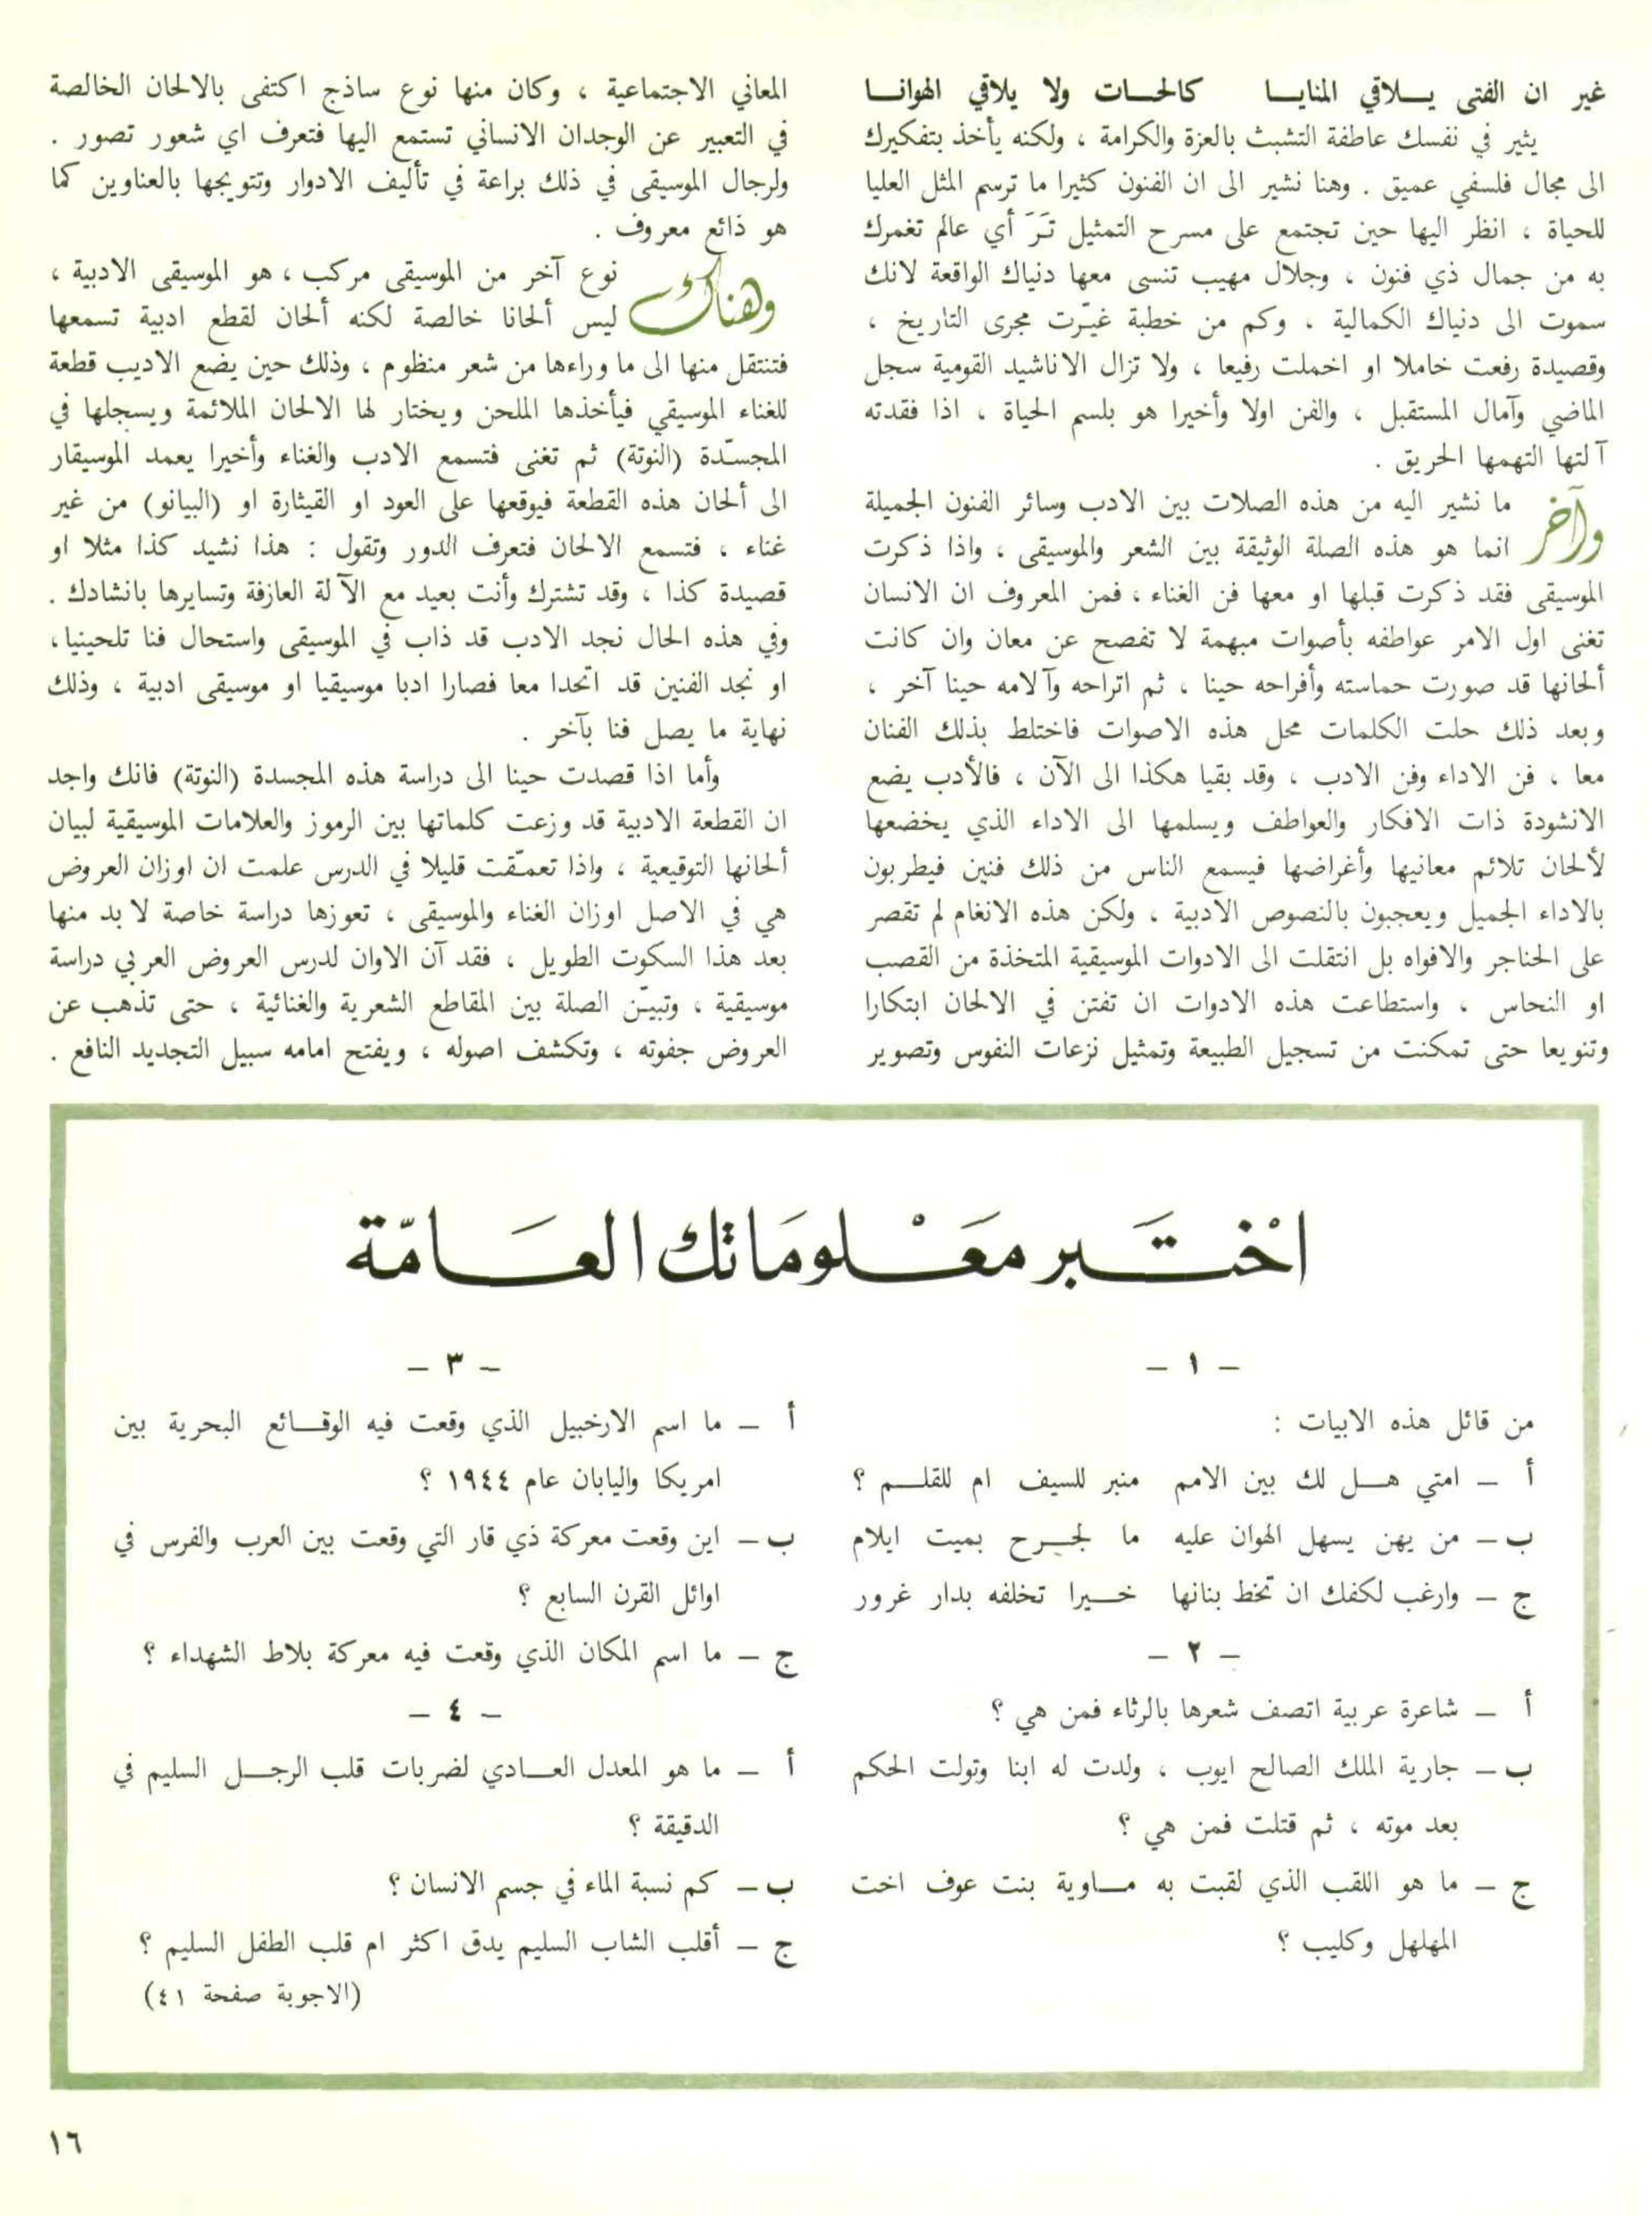 غير ان الفتى يـــلاقي المنايـــا كالحـــات ولا يلاقي الهوانـــا
يثير في نفسك عاطفة التشبث بالعزة والكرامة ، ولكنه يأخذ بتفكيرك
الى مجال فلسفي عميق . وهنا نشير الى ان الفنون كثيرا ما ترسم المثل العليا
للحياة ، انظر اليها حين تجتمع على مسرح التمثيل تَرَ أي عالم تغمرك
به من جمال ذي فنون ، وجلال مهيب تنسى معها دنياك الواقعة لانك
سموت الى دنياك الكمالية ، وكم من خطبة غيّرت مجرى التاريخ ،
وقصيدة رفعت خاملا او اخملت رفيعا ، ولا تزال الاناشيد القومية سجل
الماضي وآمال المستقبل ، والفن اولا وأخيرا هو بلسم الحياة ، اذا فقدته
آلتها التهمها الحريق .
وآخر ما نشير اليه من هذه الصلات بين الادب وسائر الفنون الجميلة
انما هو هذه الصلة الوثيقة بين الشعر والموسيقى ، واذا ذكرت
الموسيقى فقد ذكرت قبلها او معها فن الغناء ، فمن المعروف ان الانسان
تغنى اول الامر عواطفه بأصوات مبهمة لا تفصح عن معان وان كانت
ألحانها قد صورت حماسته وأفراحه حينا ، ثم اتراحه وآلامه حينا آخر ،
وبعد ذلك حلت الكلمات محل هذه الاصوات فاختلط بذلك الفنان
معا ، فن الاداء وفن الادب ، وقد بقيا هكذا الى الآن ، فالأدب يضع
الانشودة ذات الافكار والعواطف ويسلمها الى الاداء الذي يخضعها
لألحان تلائم معانيها وأغراضها فيسمع الناس من ذلك فنين فيطربون
بالاداء الجميل ويعجبون بالنصوص الادبية ، ولكن هذه الانغام لم تقصر
على الحناجر والافواه بل انتقلت الى الادوات الموسيقية المتخذة من القصب
او النحاس ، واستطاعت هذه الادوات ان تفتن في الالحان ابتكارا
وتنويعا حتى تمكنت من تسجيل الطبيعة وتمثيل نزعات النفوس وتصوير
المعاني الاجتماعية ، وكان منها نوع ساذج اكتفى بالالحان الخالصة
في التعبير عن الوجدان الانساني تستمع اليها فتعرف اي شعور تصور .
ولرجال الموسيقى في ذلك براعة في تأليف الادوار وتتويجها بالعناوين كما
هو ذائع معروف .
وهناك نوع آخر من الموسيقى مركب ، هو الموسيقى الادبية ،
ليس ألحانا خالصة لكنه ألحان لقطع ادبية تسمعها
فتنتقل منها الى ما وراءها من شعر منظوم ، وذلك حين يضع الاديب قطعة
للغناء الموسيقي فيأخذها الملحن ويختار لها الالحان الملائمة ويسجلها في
المجسّدة (النوتة) ثم تغنى فتسمع الادب والغناء وأخيرا يعمد الموسيقار
الى ألحان هذه القطعة فيوقعها على العود او القيثارة او (البيانو) من غير
غناء ، فتسمع الالحان فتعرف الدور وتقول : هذا نشيد كذا مثلا او
قصيدة كذا ، وقد تشترك وأنت بعيد مع الآلة العازفة وتسايرها بانشادك .
وفي هذه الحال نجد الادب قد ذاب في الموسيقى واستحال فنا تلحينيا ،
او نجد الفنين قد اتحدا معا فصارا ادبا موسيقيا او موسيقى ادبية ، وذلك
نهاية ما يصل فنا بآخر .
وأما اذا قصدت حينا الى دراسة هذه المجسدة (النوتة) فانك واجد
ان القطعة الادبية قد وزعت كلماتها بين الرموز والعلامات الموسيقية لبيان
ألحانها التوقيعية ، واذا تعمّقت قليلا في الدرس علمت ان اوزان العروض
هي في الاصل اوزان الغناء والموسيقى ، تعوزها دراسة خاصة لا بد منها
بعد هذا السكوت الطويل ، فقد آن الاوان لدرس العروض العربي دراسة
موسيقية ، وتبيّن الصلة بين المقاطع الشعرية والغنائية ، حتى تذهب عن
العروض جفوته ، وتكشف اصوله ، ويفتح امامه سبيل التجديد النافع .
اخْتَـبر معَـْلومَاتك العَـامّة
– ١ –
من قائل هذه الابيات :
أ – امتي هـــل لك بين الامم منبر للسيف ام للقلـــم ؟
ب – من يهن يسهل الهوان عليه ما لجـــرح بميت ايلام
ج – وارغب لكفك ان تخط بنانها خـــيرا تخلفه بدار غرور
– ٢ –
أ – شاعرة عربية اتصف شعرها بالرثاء فمن هي ؟
ب – جارية الملك الصالح ايوب ، ولدت له ابنا وتولت الحكم
بعد موته ، ثم قتلت فمن هي ؟
ج – ما هو اللقب الذي لقبت به مـــاوية بنت عوف اخت
المهلهل وكليب ؟
– ٣ –
أ – ما اسم الارخبيل الذي وقعت فيه الوقـــائع البحرية بين
امريكا واليابان عام ١٩٤٤ ؟
ب – اين وقعت معركة ذي قار التي وقعت بين العرب والفرس في
اوائل القرن السابع ؟
ج – ما اسم المكان الذي وقعت فيه معركة بلاط الشهداء ؟
– ٤ –
أ – ما هو المعدل العـــادي لضربات قلب الرجـــل السليم في
الدقيقة ؟
ب – كم نسبة الماء في جسم الانسان ؟
ج – أقلب الشاب السليم يدق اكثر ام قلب الطفل السليم ؟
(الاجوبة صفحة ٤١)
١٦